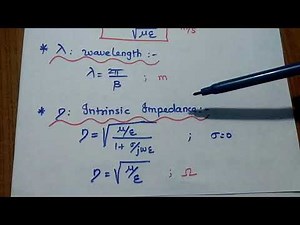 √με
m/s
* λ: wavelength:-
λ = 2π/β ; m
* η: Intrinsic Impedance:-
η = √((μ/ε)/(1 + σ/jωε)) ; σ=0
η = √(μ/ε) ; Ω